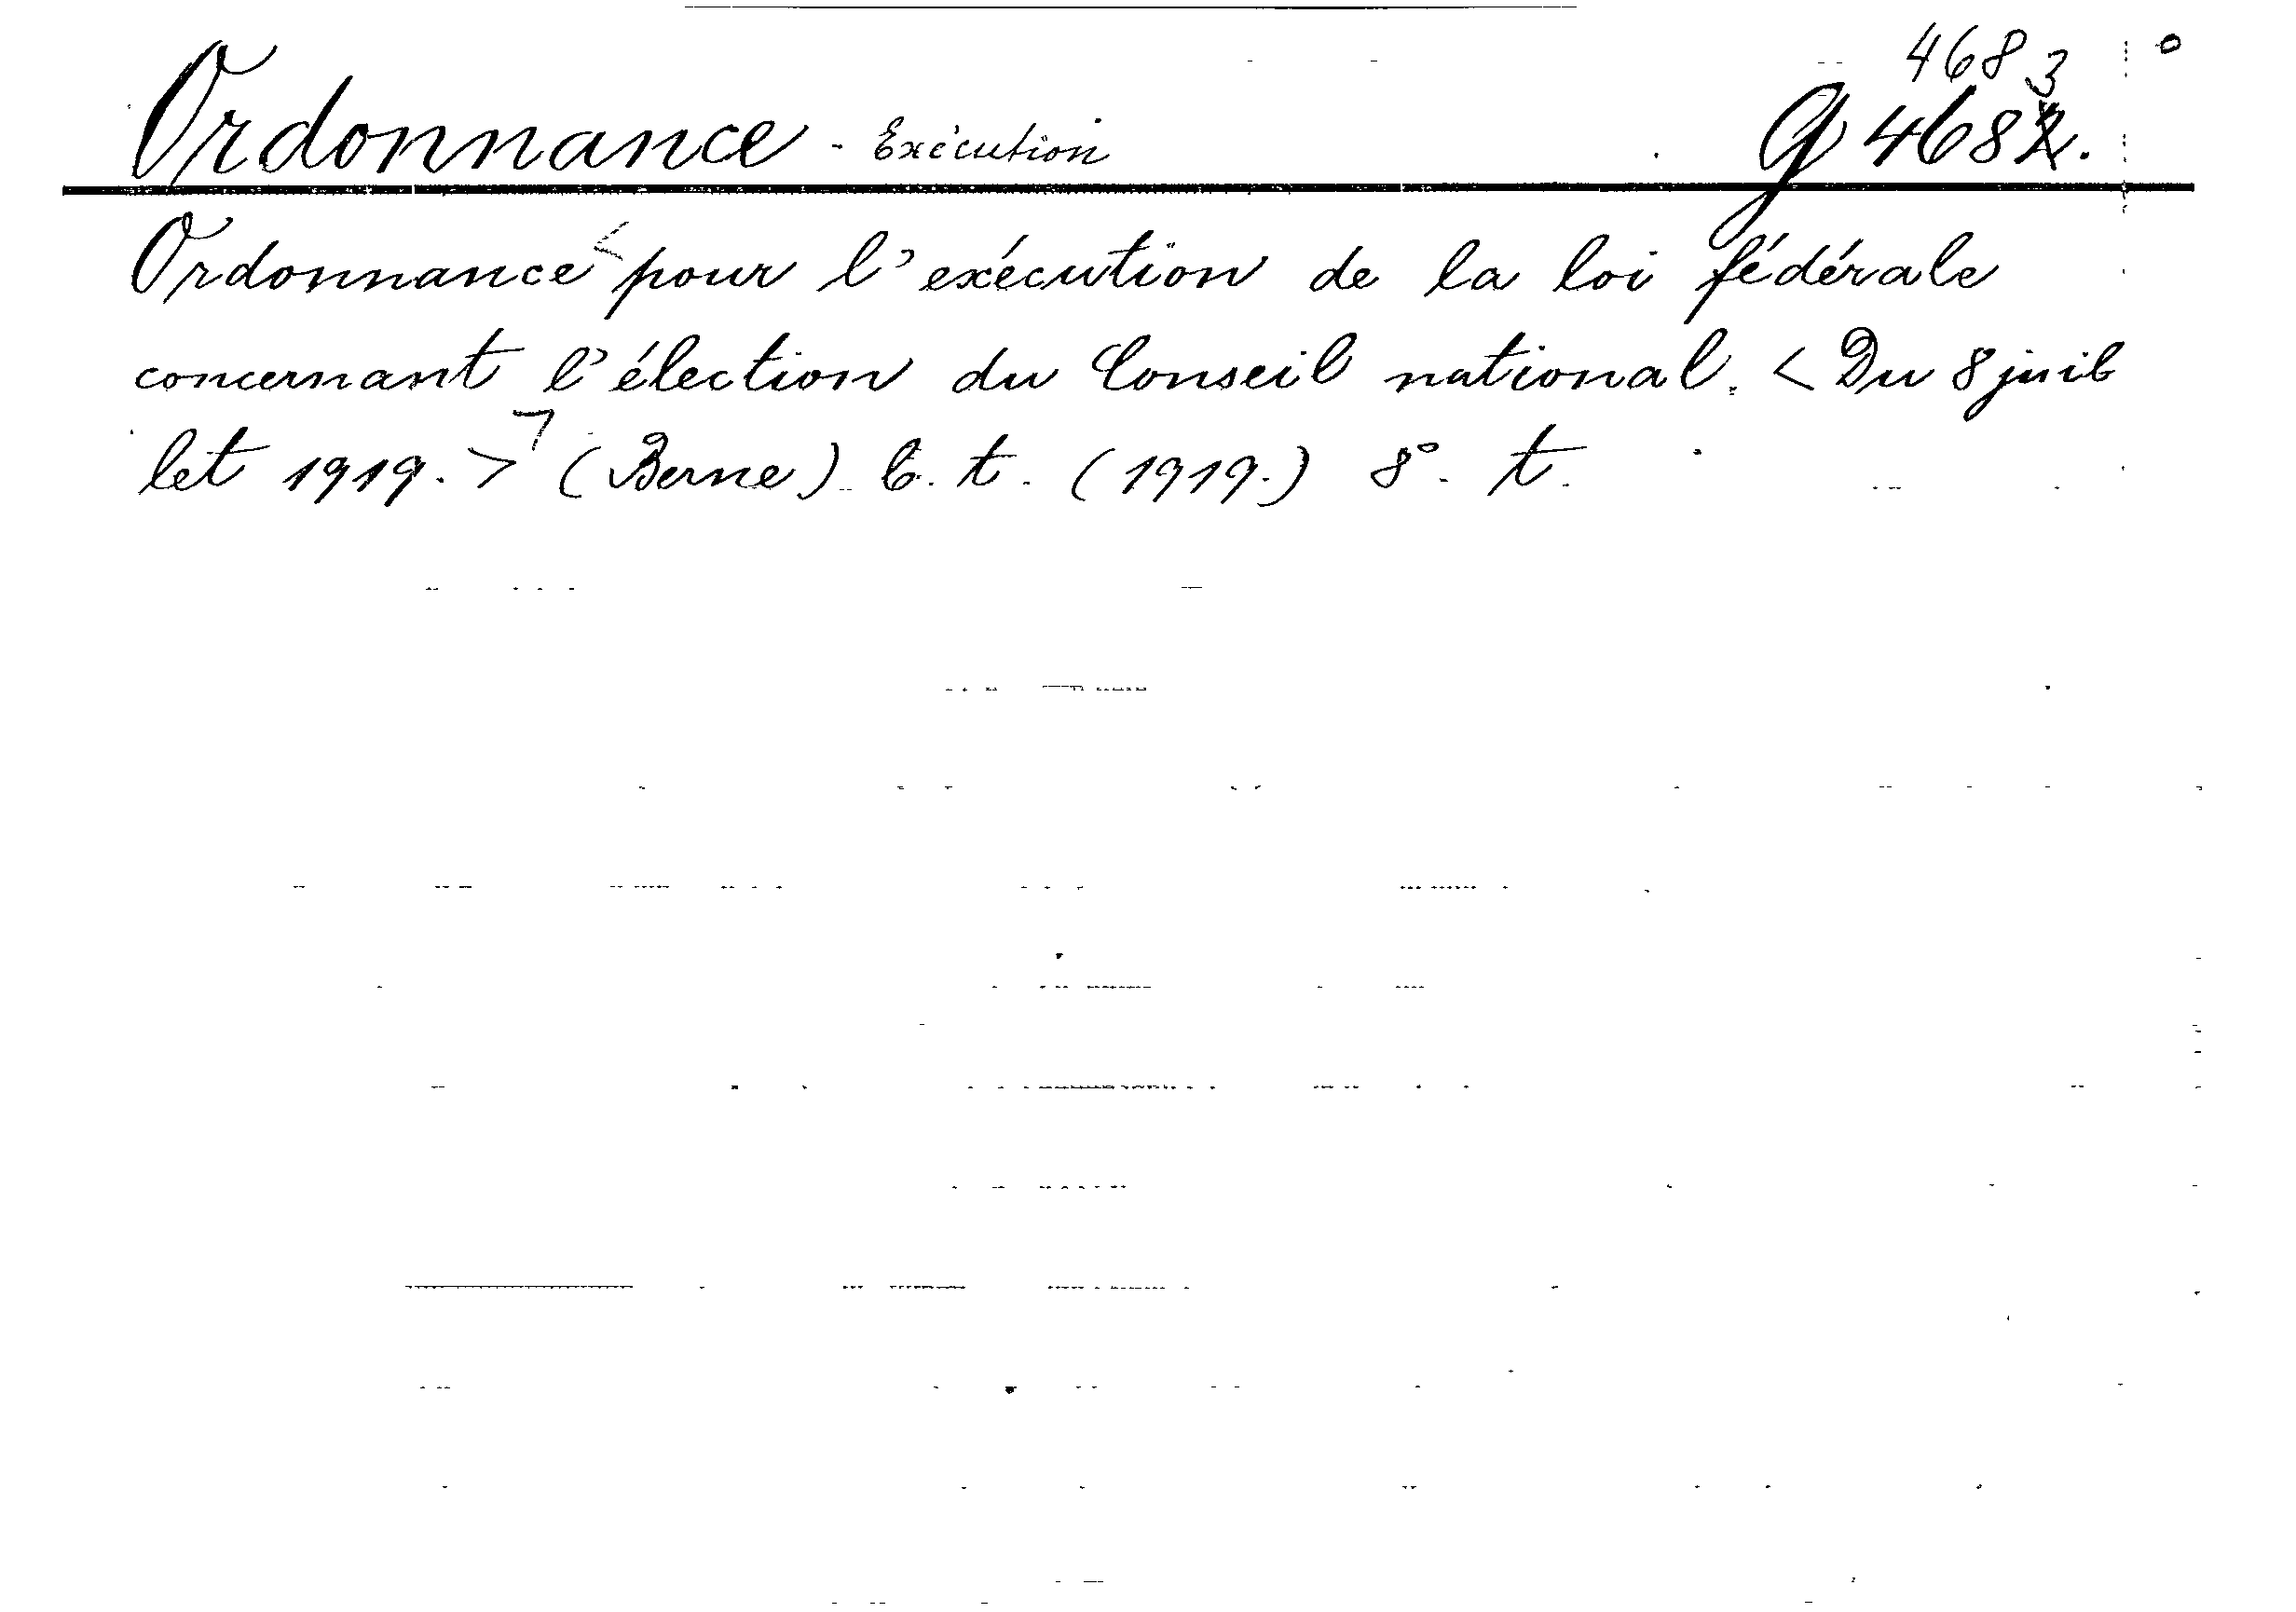 4683
Ordonnance - Exécution G 4682.
Ordonnance < pour l'exécution de la loi fédérale
concernant l'élection du Conseil national. < Du 8 juil
let 1919. > > (Berne) b. t. (1919.) 8°. t.